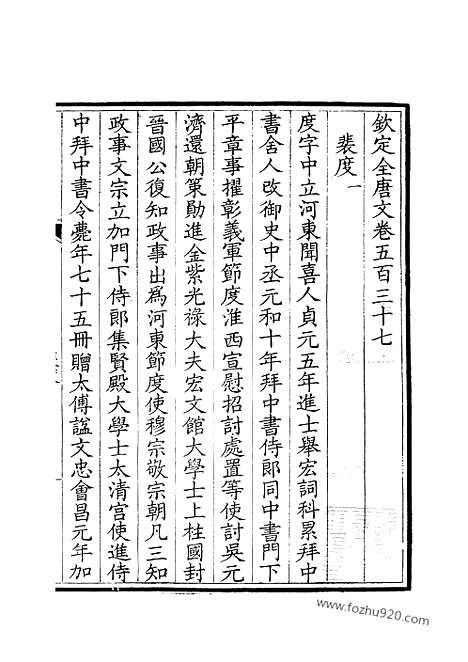 欽定全唐文卷五百三十七
裴度一
度字中立河東聞喜人貞元五年進士舉宏詞科累拜中
書舍人改御史中丞元和十年拜中書侍郎同中書門下
平章事擢彰義軍節度淮西宣慰招討處置等使討吳元
濟還朝策勛進金紫光祿大夫宏文館大學士上柱國封
晉國公復知政事出為河東節度使穆宗敬宗朝凡三知
政事文宗立加門下侍郎集賢殿大學士太清宮使進侍
中拜中書令薨年七十五冊贈太傅諡文忠會昌元年加
www.fozhu920.com